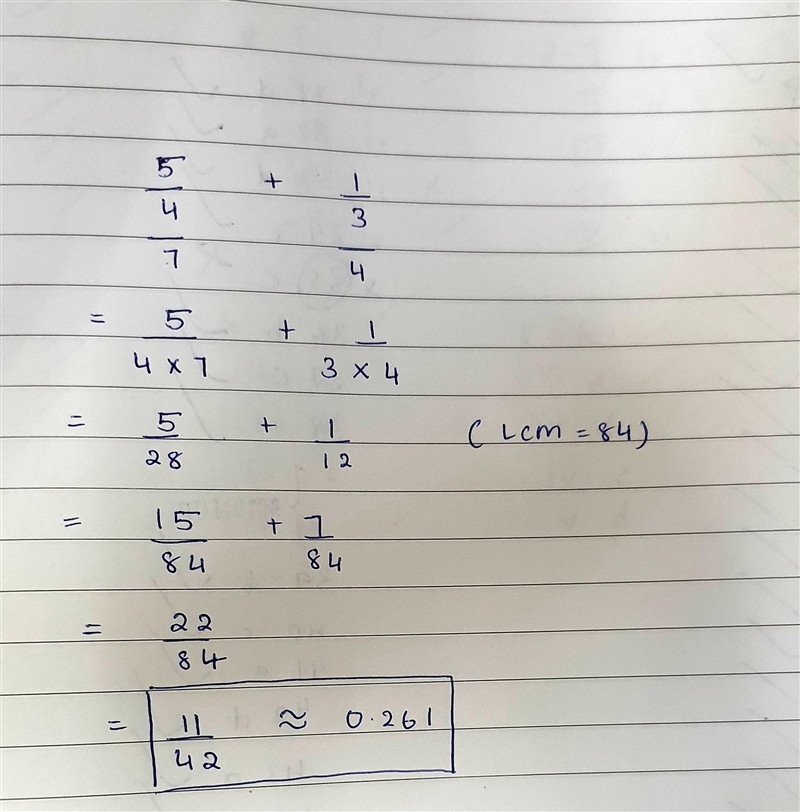 5/4/7 + 1/3/4
= 5/(4 x 7) + 1/(3 x 4)
= 5/28 + 1/12 (LCM = 84)
= 15/84 + 7/84
= 22/84
= 11/42 ≈ 0.261